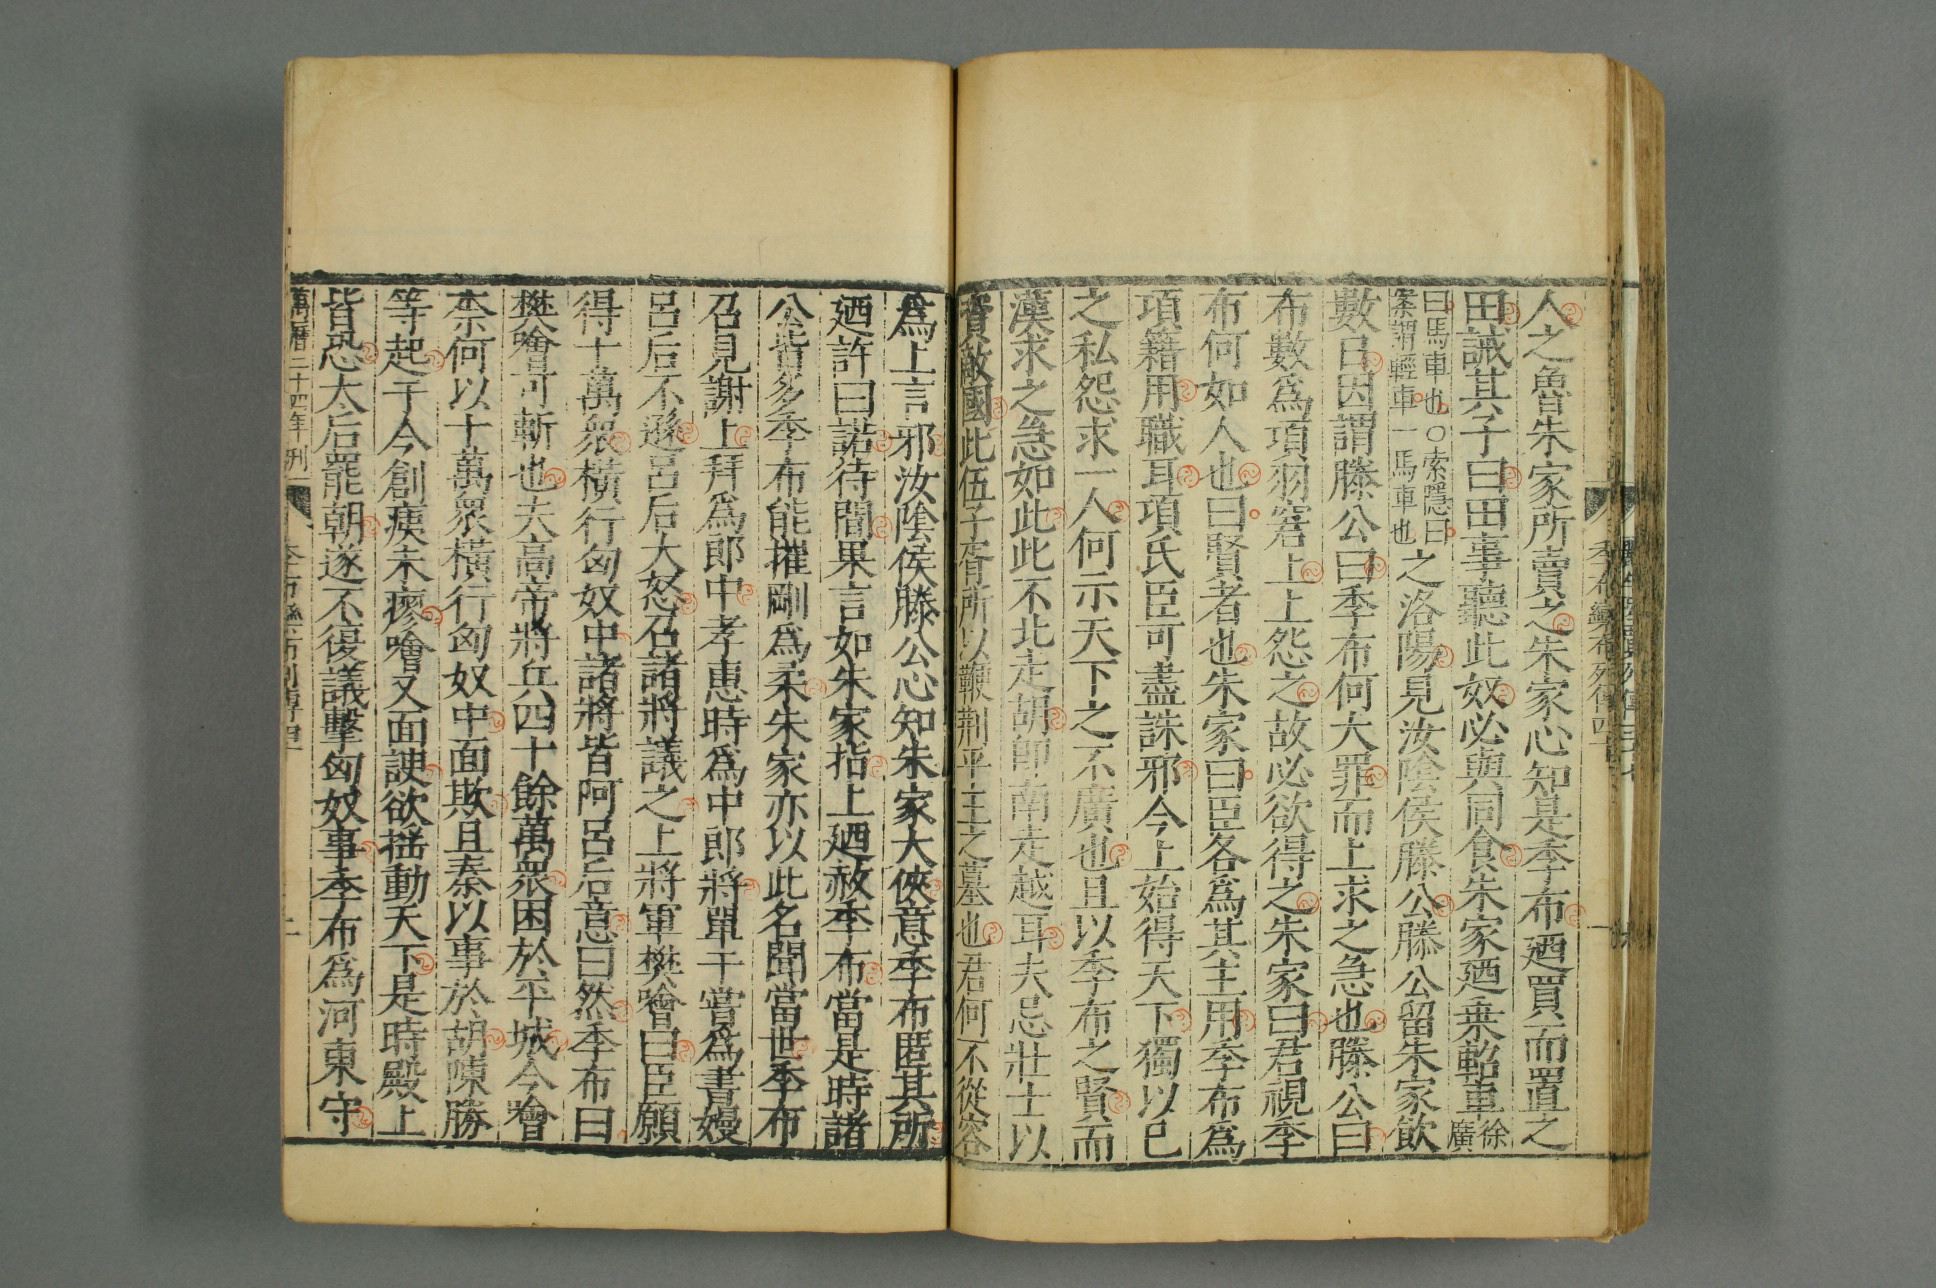 人之魯朱家所賣之朱家心知是季布廼買而置之
田誡其子曰田事聽此奴必與同食朱家廼乗軺車徐廣
曰馬車也○索隱曰
案謂輕車一馬車也之洛陽見汝陰侯滕公滕公留朱家飲
數日因謂滕公曰季布何大罪而上求之急也滕公曰
布數爲項羽窘上上怨之故必欲得之朱家曰君視季
布何如人也曰賢者也朱家曰臣各爲其主用季布爲
項籍用職耳項氏臣可盡誅邪今上始得天下獨以己
之私怨求一人何示天下之不廣也且以季布之賢而
漢求之急如此此不北走胡即南走越耳夫忌壯士以
資敵國此伍子胥所以鞭荆平王之墓也君何不從容
爲上言邪汝陰侯滕公心知朱家大俠意季布匿其所
廼許曰諾待間果言如朱家指上廼赦季布當是時諸
公皆多季布能摧剛爲柔朱家亦以此名聞當世季布
召見謝上拜爲郎中孝惠時爲中郎將單于嘗爲書嫚
呂后不遜呂后大怒召諸將議之上將軍樊噲曰臣願
得十萬衆橫行匈奴中諸將皆阿呂后意曰然季布曰
樊噲可斬也夫高帝將兵四十餘萬衆困於平城今噲
柰何以十萬衆橫行匈奴中面欺且秦以事於胡陳勝
等起于今創痍未瘳噲又面諛欲揺動天下是時殿上
皆恐太后罷朝遂不復議擊匈奴事季布爲河東守
萬曆二十四年刊
季布欒布列傳四十
二
季布欒布列傳四十
一